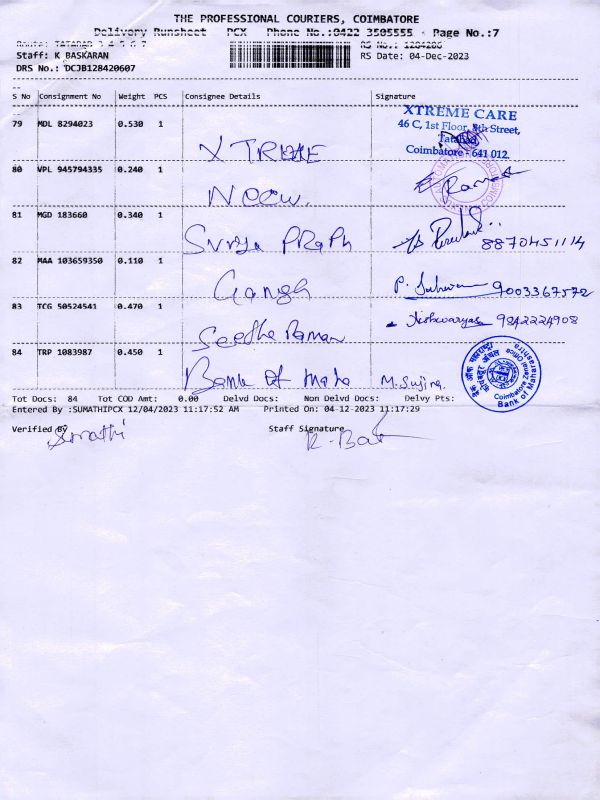 THE PROFESSIONAL COURIERS, COIMBATORE
Delivery Runsheet PCX Phone No.:0422 3505555 Page No.:7
Route: TATABAD 3 4 5 6 7 RS No.: 1284206
Staff: K BASKARAN RS Date: 04-Dec-2023
DRS No.: DCJB128420607
S No Consignment No Weight PCS Consignee Details Signature
XTREME CARE
46 C, 1st Floor, 8th Street,
Tatabad,
Coimbatore - 641 012.
79 MDL 8294023 0.530 1 XTREME
80 VPL 945794335 0.240 1
81 MGD 183660 0.340 1 Surya PRaPh 8870451114
82 MAA 103659350 0.110 1 Gangh 9003367572
83 TCG 50524541 0.470 1 Seetha Raman Aishwaryas 9842224908
84 TRP 1083987 0.450 1 Bank of Maha M. Sujira.
बैंक ऑफ महाराष्ट्र
Coimbatore Zonal Office
Bank of Maharashtra
Tot Docs: 84 Tot COD Amt: 0.00 Delvd Docs: Non Delvd Docs: Delvy Pts:
Entered By :SUMATHIPCX 12/04/2023 11:17:52 AM Printed On: 04-12-2023 11:17:29
Verified By Staff Signature